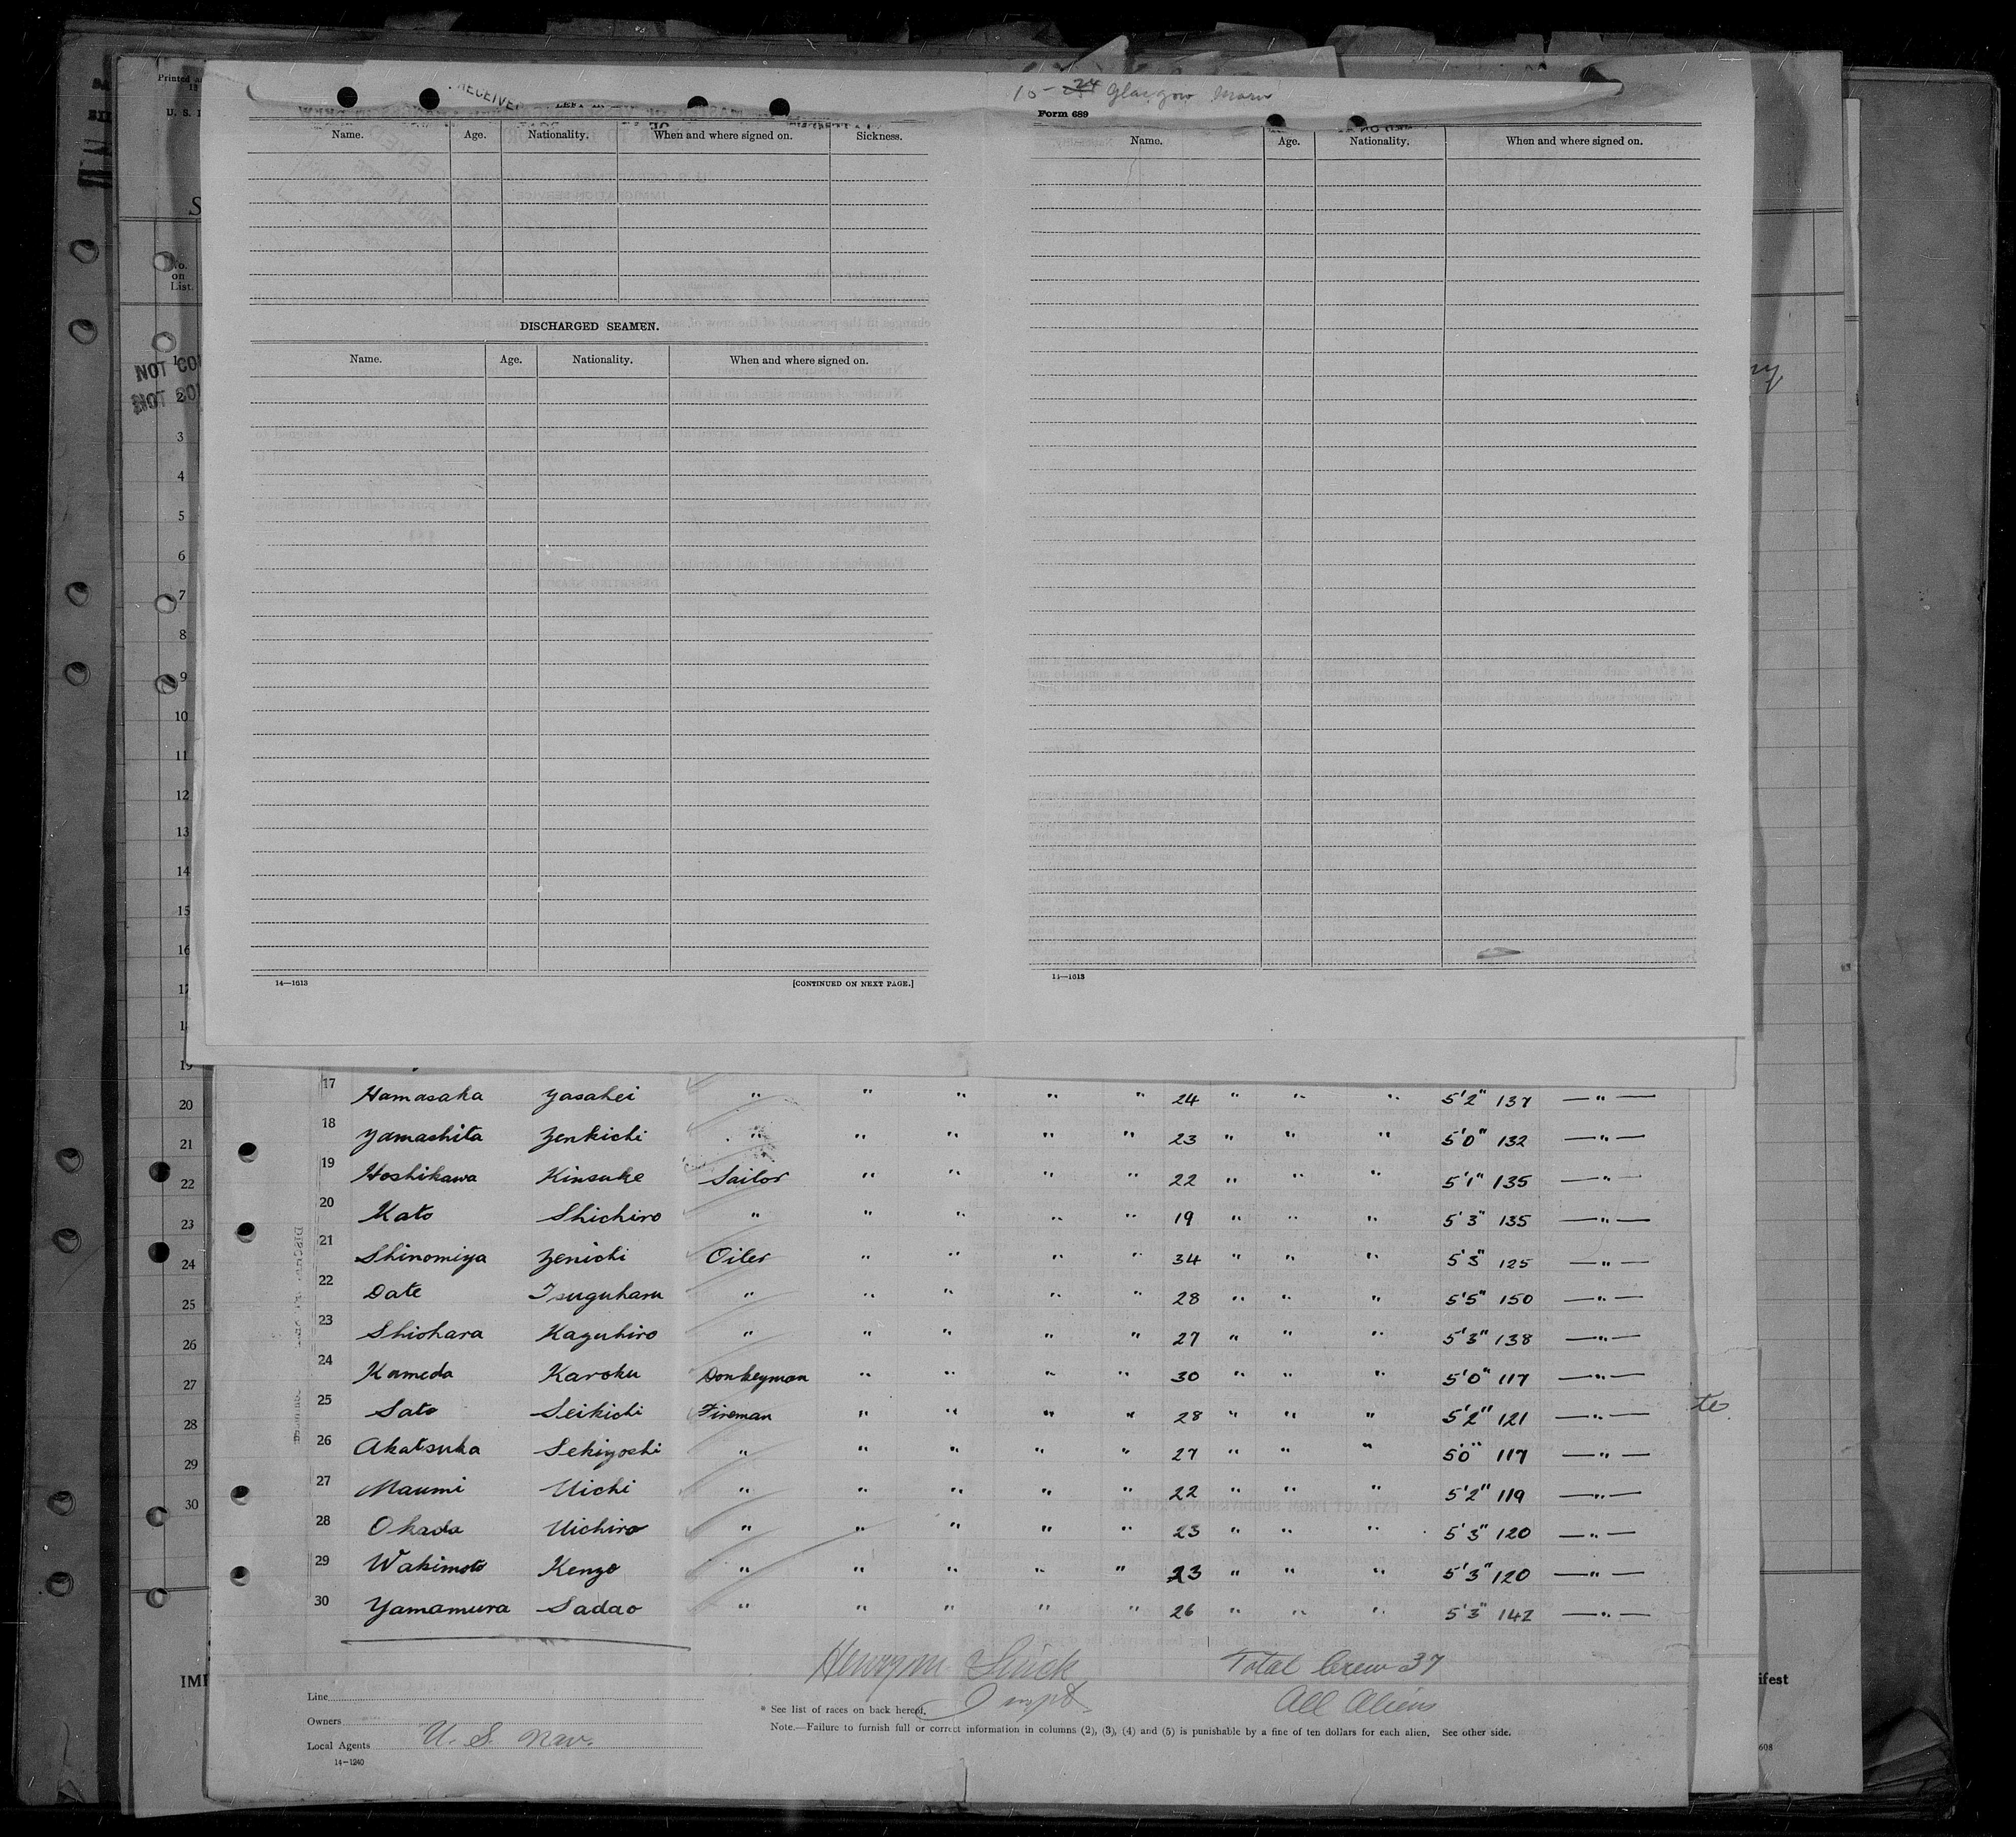 Printed
U. S.
RECEIVED
LEFT
Glasgow Maru
Form 689
Name. Age. Nationality. When and where signed on. Sickness.
Name. Age. Nationality. When and where signed on.
DISCHARGED SEAMEN.
Name. Age. Nationality. When and where signed on.
14—1613 [CONTINUED ON NEXT PAGE.]
14—1613
No. on List.
NOT
NOT
1
2
3
4
5
6
7
8
9
10
11
12
13
14
15
16
17
18
19
20
21
22
23
24
25
26
27
28
29
30
17 Hamasaka Yasahei " " " " " 24 " " " 5'2" 137 —"—
18 Yamashita Zenkichi " " " " " 23 " " " 5'0" 132 —"—
19 Hoshikawa Kinsuke Sailor " " " " 22 " " " 5'1" 135 —"—
20 Kato Shichiro " " " " " 19 " " " 5'3" 135 —"—
21 Shinomiya Zenichi Oiler " " " " 34 " " " 5'3" 125 —"—
22 Date Tsuguharu " " " " " 28 " " " 5'5" 150 —"—
23 Shiohara Kazuhiro " " " " " 27 " " " 5'3" 138 —"—
24 Kameda Karoku Donkeyman " " " " 30 " " " 5'0" 117 —"—
25 Sato Seikichi Fireman " " " " 28 " " " 5'2" 121 —"—
26 Akatsuka Sekiyoshi " " " " " 27 " " " 5'0" 117 —"—
27 Maumi Uichi " " " " " 22 " " " 5'2" 119 —"—
28 Okada Uichiro " " " " " 23 " " " 5'3" 120 —"—
29 Wakimoto Kenzo " " " " " 23 " " " 5'3" 120 —"—
30 Yamamura Sadao " " " " " 26 " " " 5'3" 142 —"—
Total Crew 37
All Aliens
Inspt
Line
Owners
Local Agents U. S. Nav.
14—1240
* See list of races on back hereof.
Note.—Failure to furnish full or correct information in columns (2), (3), (4) and (5) is punishable by a fine of ten dollars for each alien. See other side.